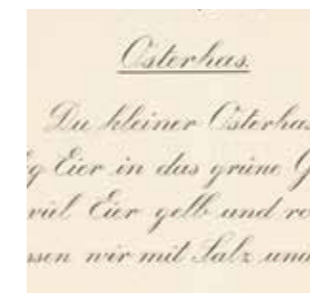 Osterhas.
Du kleiner Osterhas
g Eier in das grüne G
viel Eier gelb und ro
ssen wir mit Salz und